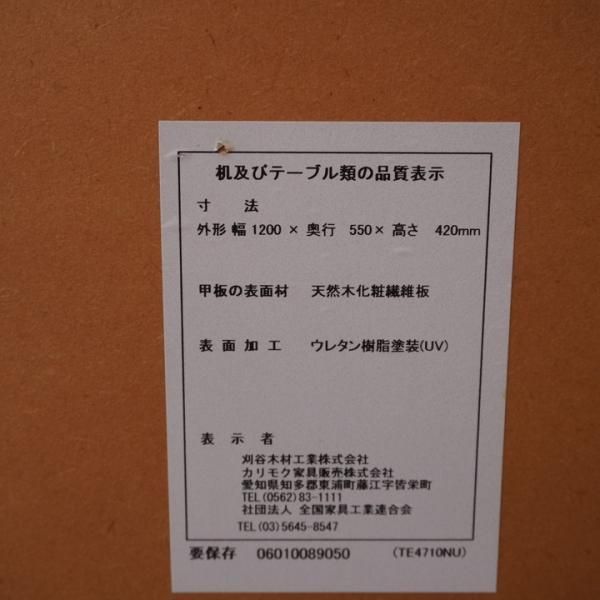 机及びテーブル類の品質表示
寸 法
外形 幅 1200 × 奥行 550× 高さ 420mm
甲板の表面材 天然木化粧繊維板
表面加工 ウレタン樹脂塗装(UV)
表示者
刈谷木材工業株式会社
カリモク家具販売株式会社
愛知県知多郡東浦町藤江字皆栄町
TEL(0562)83-1111
社団法人 全国家具工業連合会
TEL(03)5645-8547
要保存 06010089050 (TE4710NU)